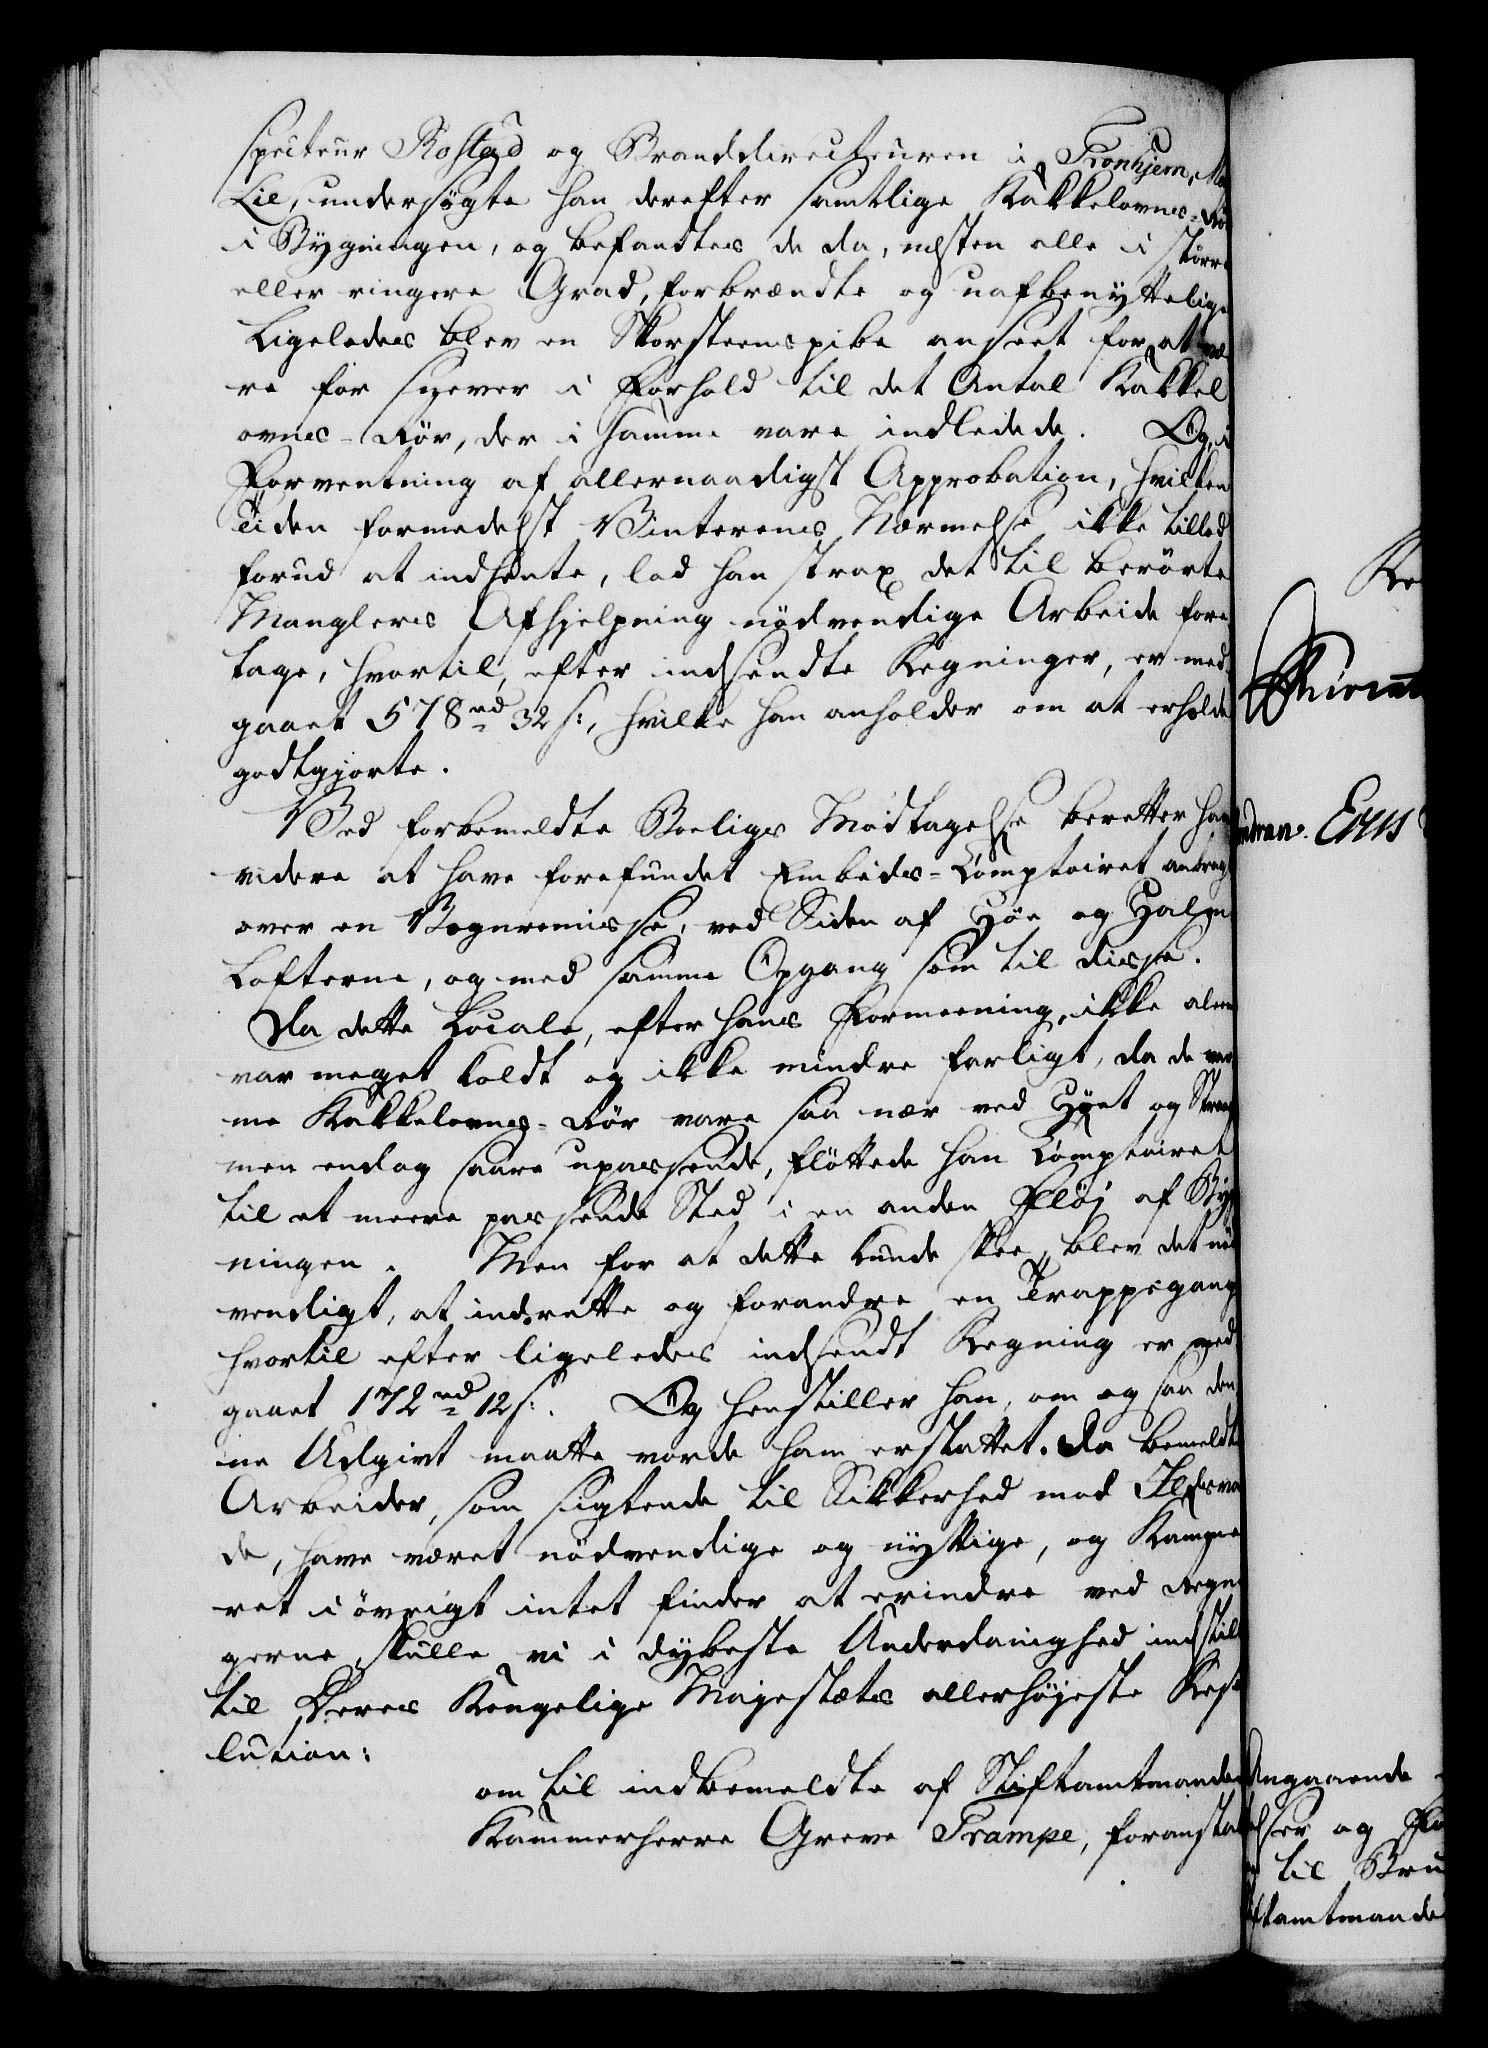 specteur Rostad og Branddirecteuren i Tronhjem,
Lie, undersøgte han derefter samtlige Kakkelovns-Rør
i Bygningen, og befandtes de da, næsten alle i større
eller ringere Grad, forbrændte og uafbenyttelige
Ligeledes blev en Skorsteenspibe anseet for at væ
re for snever i Forhold til det Antal Kakkel
ovns-Rør, der i samme vare indledede. Og, i
Forventning af allernaadigst Approbation, hvilken
Tiden formedelst Vinterens Nærmelse ikke tillod
forud at indhente, lod han strax det til berørte
Manglers Afhjelpning nødvendige Arbeide fore
tage, hvortil, efter indsendte Regninger, er med
gaaet 578 rd 32 s:, hvilke han anholder om at erholde
godtgjorte.
Ved forbemeldte Boeligs Modtagelse beretter han
videre at have forefundet Embeds-Comptoiret anbragt
over en Vognremisse, ved Siden af Høe og Halm
Lofterne, og med samme Opgang som til disse.
Da dette Locale, efter hans Formeening, ikke alene
var meget koldt og ikke mindre farligt, da de var
me Kakkelovns-Rør vare saa nær ved Høet og
men endog saare upassende, fløttede han Comptoiret
til et meere passende Sted i en anden Fløj af Byg
ningen. Men for at dette kunde skee, blev det nød
vendigt, at indrette og forandre en Trappegang
hvortil efter ligeledes indsendt Regning er med
gaaet 172 rd 12 s:. Og henstiller han, om og saa den
ne Udgivt maatte vorde ham erstattet. Da bemeldte
Arbeider, som sigtende til Sikkerhed mod Ildsvaa
de, have været nødvendige og nyttige, og Kamme
ret i øvrigt intet finder at erindre ved Regnin
gerne, skulle vi i dybeste Underdanighed indstille
til Deres Kongelige Majestæts allerhøjeste Reso
lution:
om til indbemeldte af Stiftamtmanden
Kammerherre Greve Trampe, foranstal
Angaaende
til Bru
tamtmande